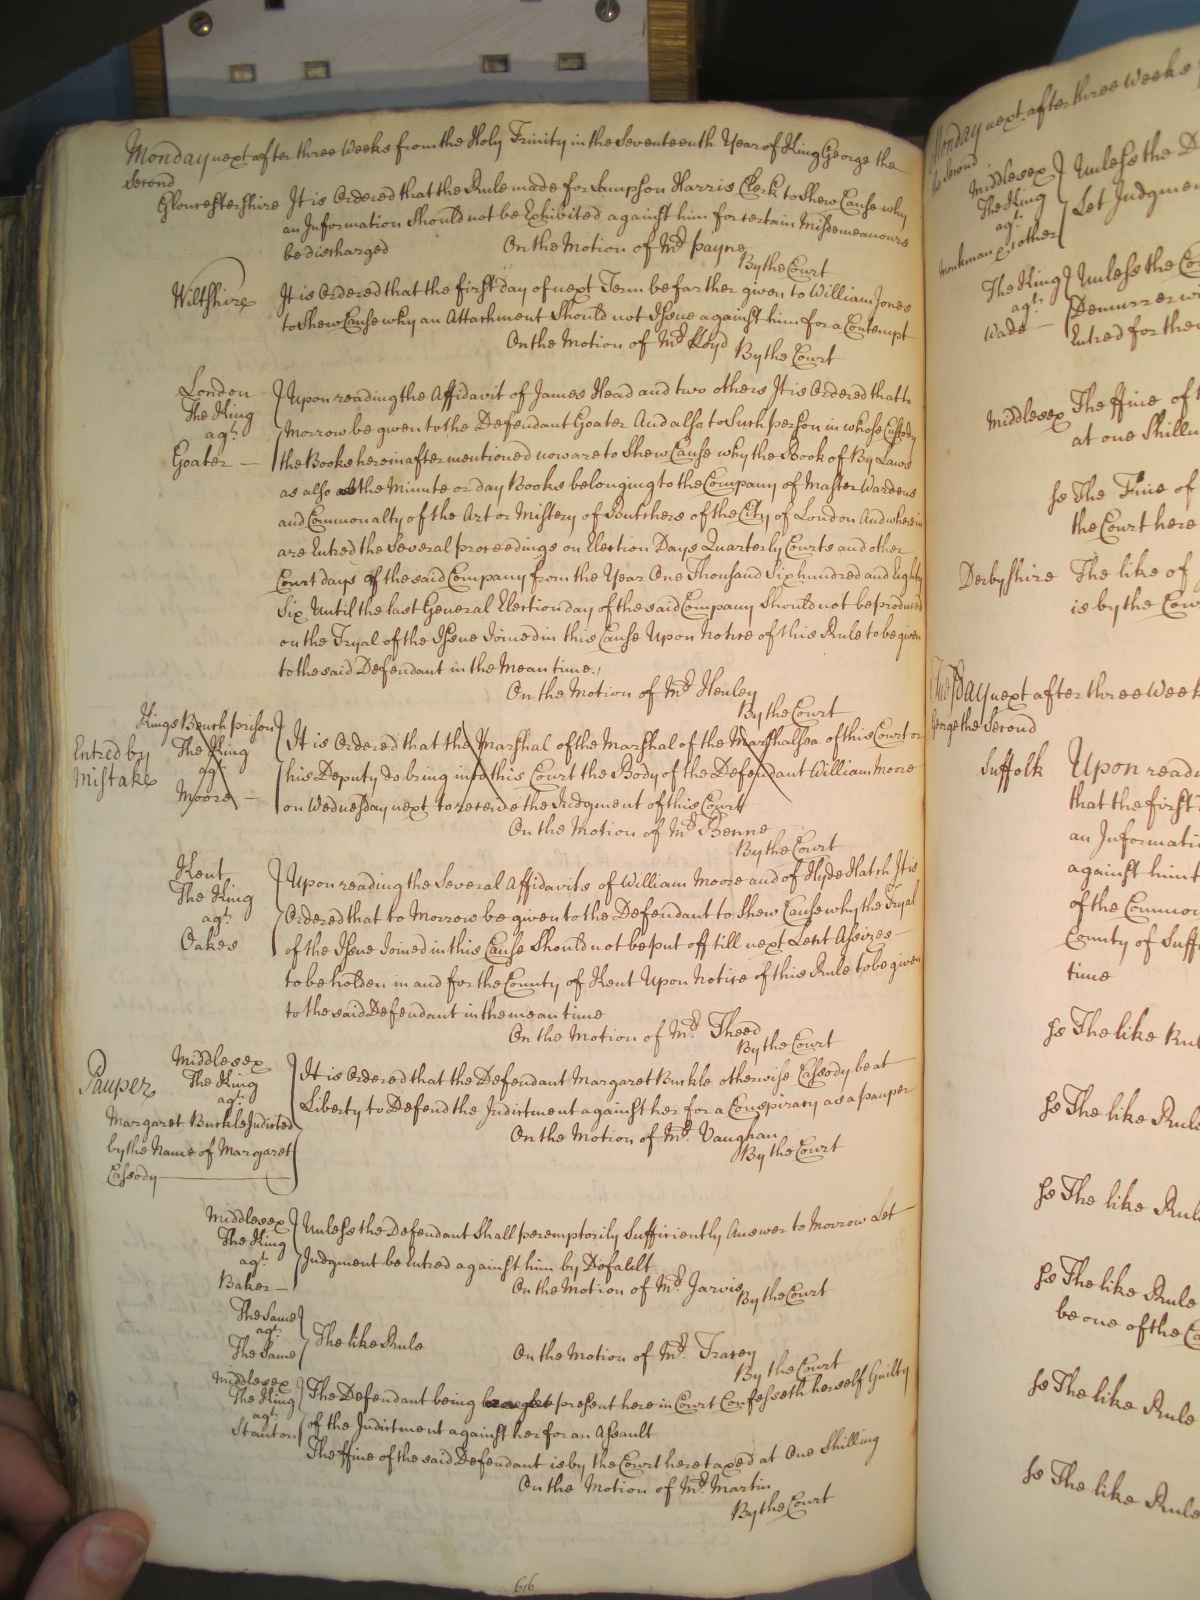 Monday next after three Weeks from the Holy Trinity in the Seventeenth Year of King George the
Second
Gloucestershire It is Ordered that the Rule made for Sampson Harris Clerk to Shew Cause why
an Information Should not be Exhibited against him for certain Misdemeanours
be discharged On the Motion of Mr. Payne
By the Court
Wiltshire It is Ordered that the first day of next Term be farther given to William Jones
to Shew Cause why an Attachment Should not Issue against him for a Contempt
On the Motion of Mr. Lloyd
By the Court
London
The King
agt.
Goater
Upon reading the Affidavit of James Head and two others It is Ordered that to
Morrow be given to the Defendant Goater And also to Such person in whose Custody
the Books hereinafter mentioned now are to Shew Cause why the Book of By Laws
as also the Minute or day Books belonging to the Company of Master Wardens
and Commonalty of the Art or Mistery of Butchers of the City of London And wherein
are Entred the Several proceedings on Election Days Quarterly Courts and other
Court days of the said Company from the Year One Thousand Six hundred and Eighty
Six Until the last General Election day of the said Company Should not be produced
on the Tryal of the Issue Joined in this Cause Upon Notice of this Rule to be given
to the said Defendant in the Mean time.
On the Motion of Mr. Henley
By the Court
Entred by
Mistake
Kings Bench prison
The King
agt.
Moore
It is Ordered that the Marshal of the Marshal of the Marshalsea of this Court or
his Deputy do bring into this Court the Body of the Defendant William Moore
on Wednesday next to receive the Judgment of this Court
On the Motion of Mr.
By the Court
Kent
The King
agt.
Oakes
Upon reading the Several Affidavits of William Moore and of Hyde Hatch It is
Ordered that to Morrow be given to the Defendant to Shew Cause why the Tryal
of the Issue Joined in this Cause Should not be put off till next Lent Assizes
to be holden in and for the County of Kent Upon Notice of this Rule to be given
to the said Defendant in the mean time
On the Motion of Mr. Theed
By the Court
Pauper
Middlesex
The King
agt.
Margaret Burkle Indicted
by the Name of Margaret
Cassody
It is Ordered that the Defendant Margaret Burkle otherwise Cassody be at
Liberty to Defend the Indictment against her for a Conspiracy as a pauper
On the Motion of Mr. Vaughan
By the Court
Middlesex
The King
agt.
Baker
Unless the Defendant Shall peremptorily Sufficiently Answer to Morrow Let
Judgment be Entred against him by Defalt
On the Motion of Mr. Jarvis
By the Court
The Same
agt.
The Same
The like Rule
On the Motion of Mr. Tracey
By the Court
Middlesex
The King
agt.
Stanton
The Defendant being present here in Court Confesseth herself Guilty
of the Indictment against her for an Assault
The ffine of the said Defendant is by the Court here taxed at One Shilling
On the Motion of Mr. Martin
By the Court
616
Monday next after three Weeks
the Second
Middlesex
The King
agt.
Monkman & other
Unless the D
Let Judgmen
The King
agt.
Wade
Unless the Co
Demurrer w
Entred for the
Middlesex The ffine of
at one Shilli
ss The Fine of
the Court here
Derbyshire The like of
is by the Cour
day next after three Week
George the Second
Suffolk Upon readi
that the first
an Informati
against him t
of the Commo
County of Suff
time
ss The like Rul
ss The like Rule
ss The like Rul
ss The like Rule
be one of the
ss The like Rule
ss The like Rule